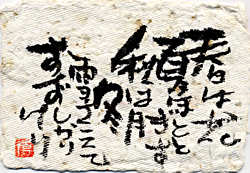 春は花
夏ほとと
ぎす
秋は月
冬
雪さえて
すずしかり
けり